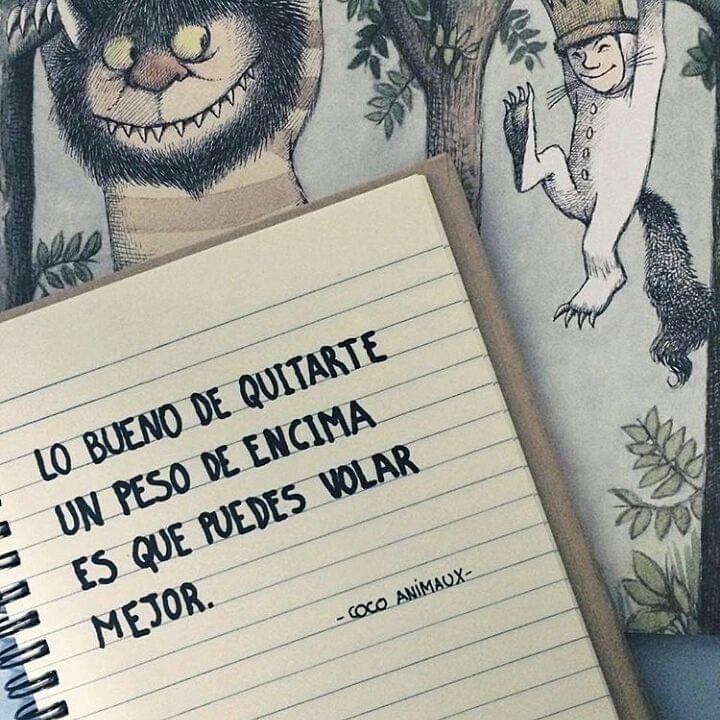 LO BUENO DE QUITARTE
UN PESO DE ENCIMA
ES QUE PUEDES VOLAR
MEJOR.
- COCO ANIMAUX-